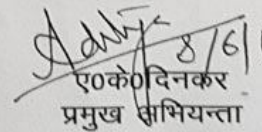 8/6/
ए०के०दिनकर
प्रमुख अभियन्ता